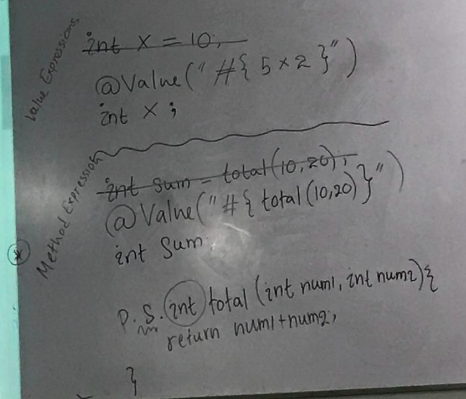 Value Expressions
int x = 10;
@Value("#{5×2}")
int x;
Method Expression
int sum = total(10,20);
@Value("#{total(10,20)}")
int Sum;
P.S. int total (int num1, int num2){
return num1+num2;
}